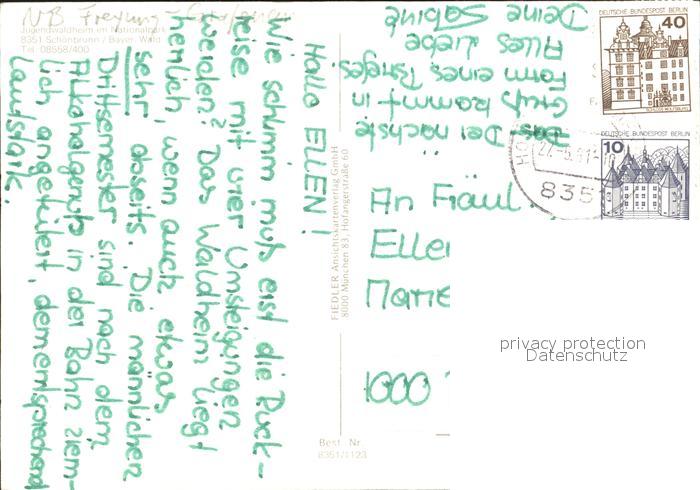 NB Freyung - Grafenau
Jugendwaldheim im Nationalpark
8351 Schönbrunn / Bayer. Wald
Tel. 08558/400
Hallo ELLEN!
Wie schlimm muß erst die Rück-
reise mit vier Umsteigungen
werden? Das Waldheim liegt
herrlich, wenn auch etwas
sehr abseits. Die männlichen
Drittsemester sind nach dem
Alkoholgenuß in der Bahn ziem-
lich angeheitert, dementsprechend
lautstark.
Das Der nächste
Gruß kommt in
Form eines Briefes.
Alles Liebe
Deine Sabine
FIEDLER Ansichtskartenverlag GmbH
8000 München 83, Hofangerstraße 60
An Fräul
Elle
Marie
1000
Best. Nr.
8351/1123
DEUTSCHE BUNDESPOST BERLIN
40
SCHLOSS WOLFSBURG
DEUTSCHE BUNDESPOST BERLIN
10
835
privacy protection
Datenschutz